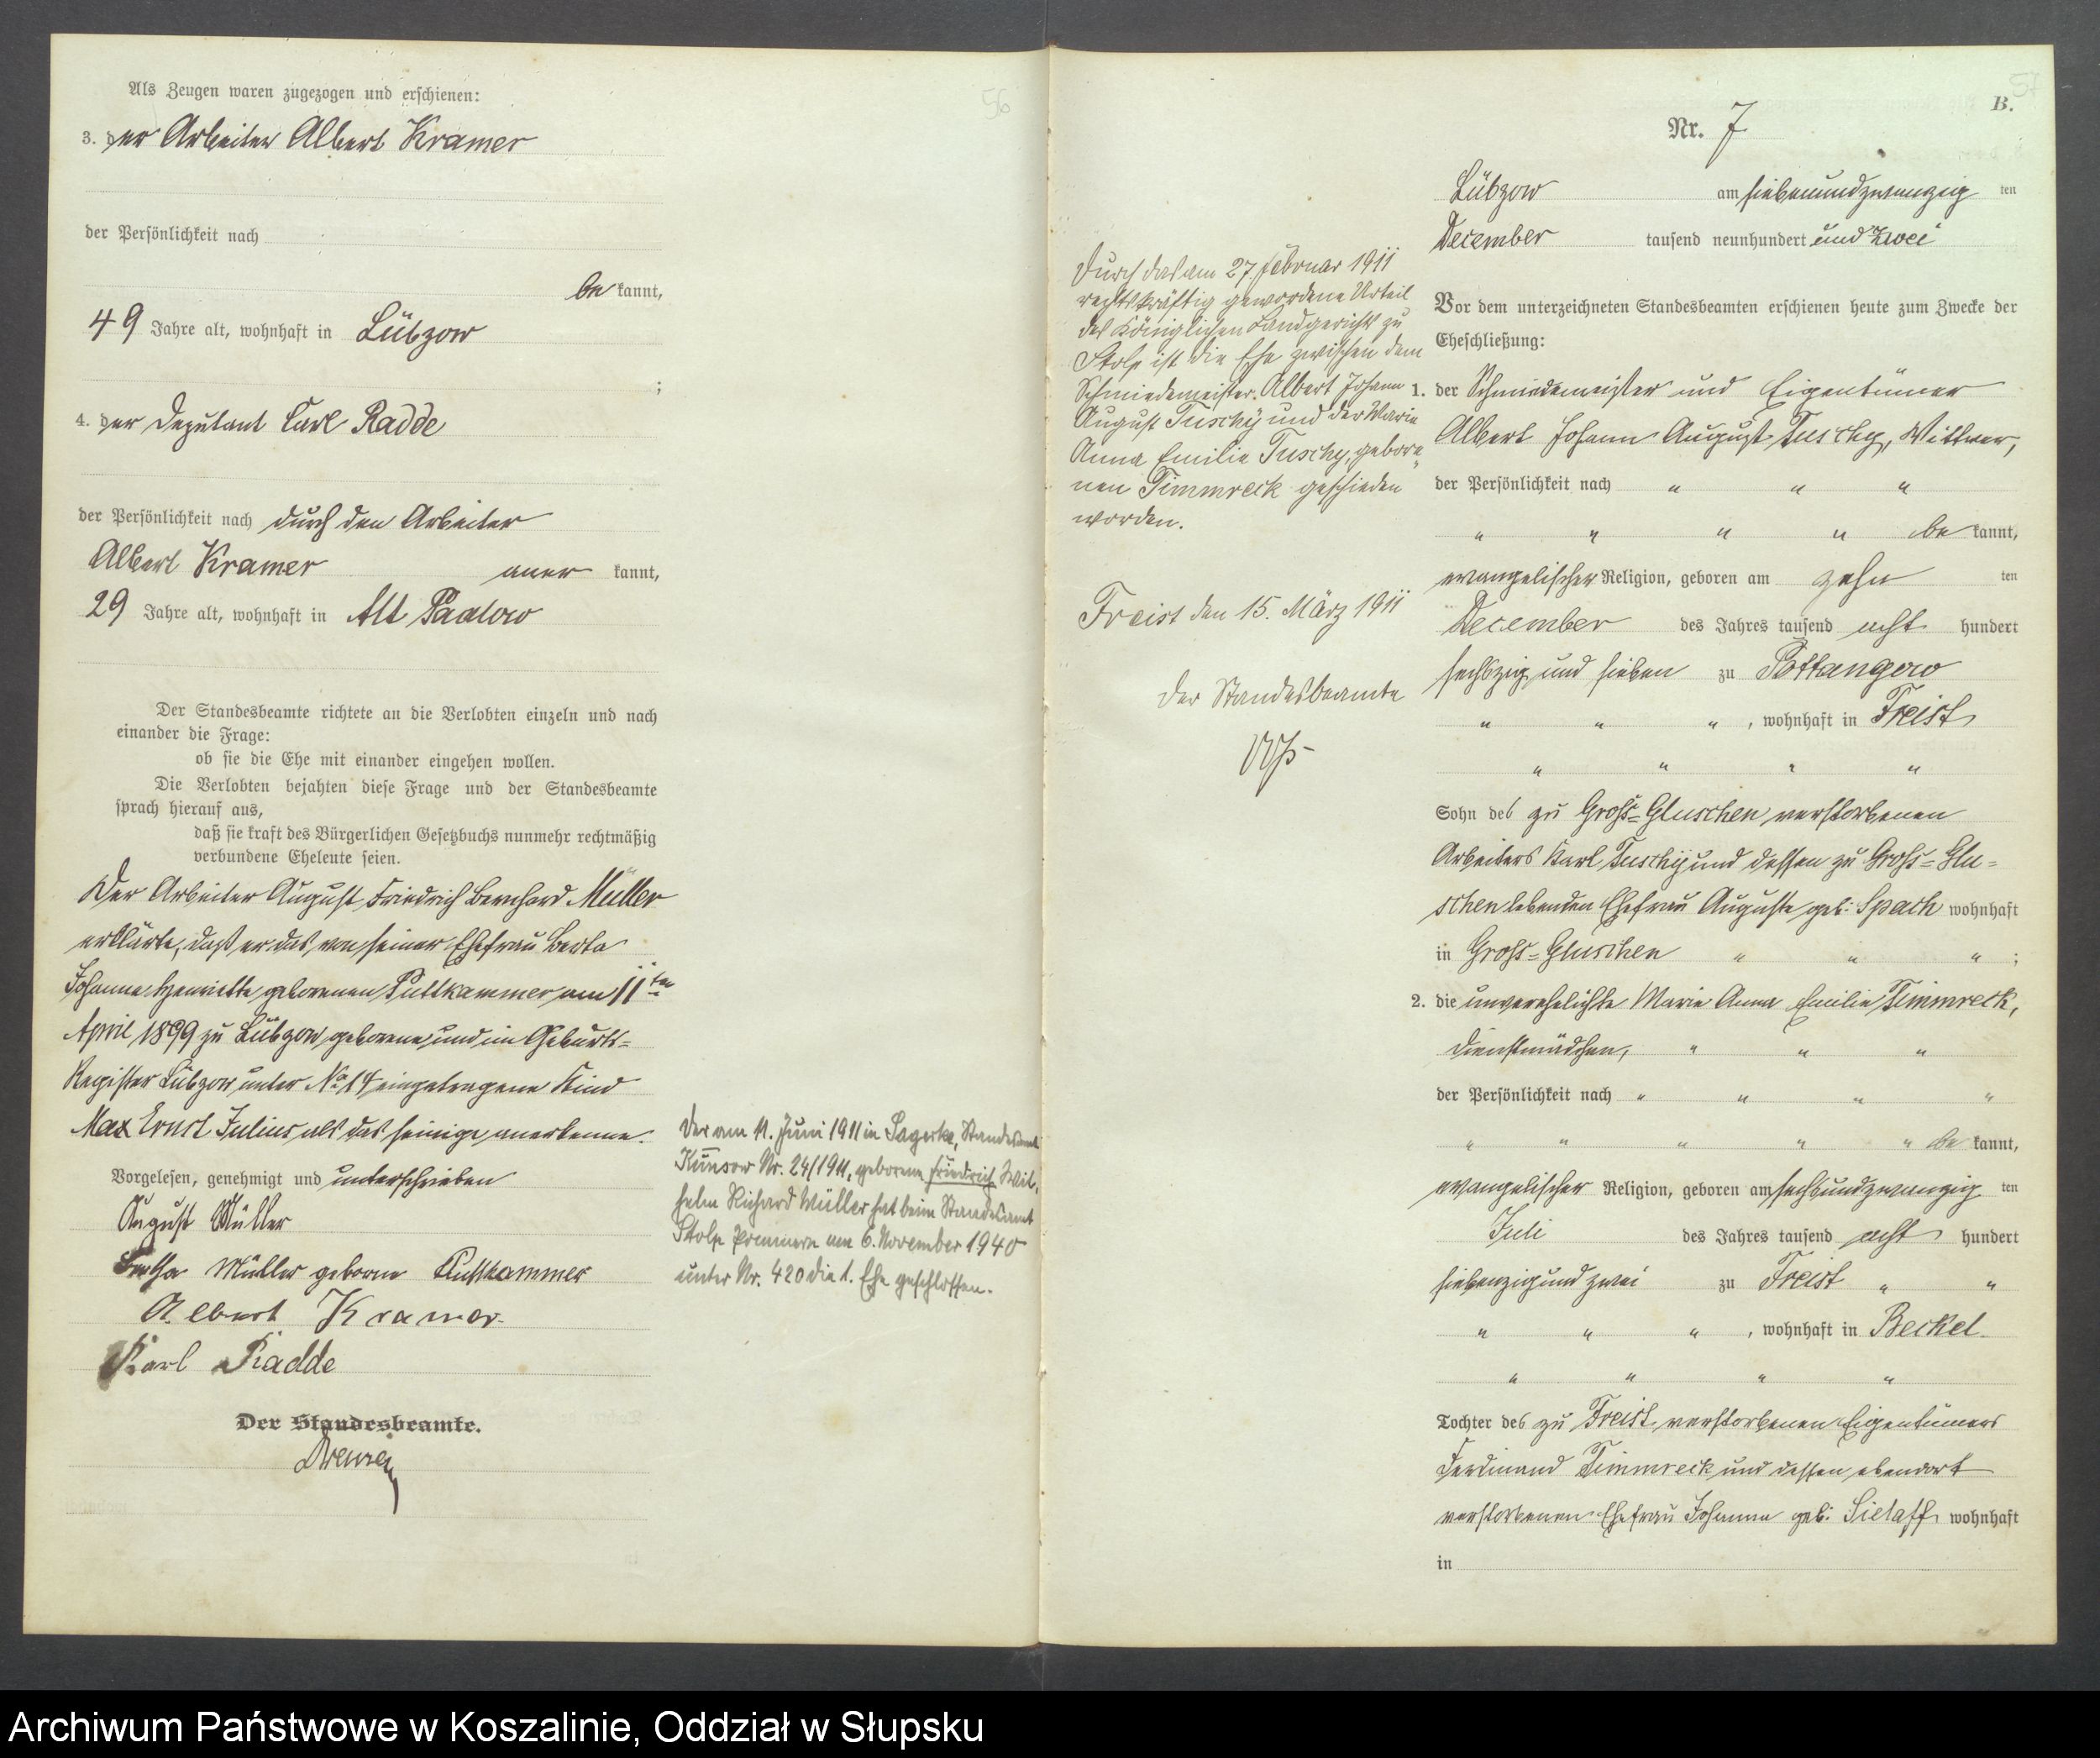 Als Zeugen waren zugezogen und erschienen:
3. der Arbeiter Albert Kramer
der Persönlichkeit nach
be kannt,
49 Jahre alt, wohnhaft in Lübzow
;
4. der Deputant Carl Radde
der Persönlichkeit nach durch den Arbeiter
Albert Kramer aner kannt,
29 Jahre alt, wohnhaft in Alt Paalow
Der Standesbeamte richtete an die Verlobten einzeln und nach
einander die Frage:
ob sie die Ehe mit einander eingehen wollen.
Die Verlobten bejahten diese Frage und der Standesbeamte
sprach hierauf aus,
daß sie kraft des Bürgerlichen Gesetzbuchs nunmehr rechtmäßig
verbundene Eheleute seien.
Der Arbeiter August Friedrich Bernhard Müller
erklärte, daß er das von seiner Ehefrau Berta
Johanna Henriette geborenen Puttkammer am 11ten
April 1899 zu Lübzow geborene und im Geburts=
Register Lübzow unter No 14 eingetragene Kind
Max Ernst Julius als das seinige anerkenne.
Vorgelesen, genehmigt und unterschrieben
August Müller
Bertha Müller geborne Puttkammer
Albert Kramer
Karl Radde
Der Standesbeamte.
56
Der am 11. Juni 1911 in Sagerke, Standesamt
Kunsow Nr. 24/1911, geborene Friedrich Wil-
helm Richard Müller hat beim Standesamt
Stolp Pommern am 6. November 1940
unter Nr. 420 die 1. Ehe geschlossen.
57
B.
Nr. 7
Lübzow am siebenundzwanzig ten
December tausend neunhundert und zwei
Vor dem unterzeichneten Standesbeamten erschienen heute zum Zwecke der
Eheschließung:
1. der Schmiedemeister und Eigentümer
Albert Johann August Tuschy, Wittwer,
der Persönlichkeit nach " " "
" " " " be kannt,
evangelischer Religion, geboren am zehn ten
December des Jahres tausend acht hundert
sechszig und sieben zu Pottangow
" " " , wohnhaft in Freist
" " " "
Sohn des zu Groß=Gluschen verstorbenen
Arbeiters Karl Tuschy und dessen zu Groß=Glu=
schen lebenden Ehefrau Auguste geb: Spach wohnhaft
in Groß=Gluschen " " " ;
2. die unverehelichte Marie Anna Emilie Timmreck,
Dienstmädchen, " " "
der Persönlichkeit nach " " " "
" " " " " be kannt,
evangelischer Religion, geboren am sechsundzwanzig ten
Juli des Jahres tausend acht hundert
siebenzig und zwei zu Freist " "
" " " , wohnhaft in Beckel
" " " "
Tochter des zu Freist verstorbenen Eigentümers
Ferdinand Timmreck und dessen ebendort
verstorbenen Ehefrau Johanna geb: Sielaff wohnhaft
in
Durch das am 27. Februar 1911
rechtskräftig gewordene Urteil
des Königlichen Landgerichts zu
Stolp ist die Ehe zwischen dem
Schmiedemeister Albert Johann
August Tuschy und der Marie
Anna Emilie Tuschy, gebore-
nen Timmreck geschieden
worden.
Freist den 15. März 1911
Der Standesbeamte
Archiwum Państwowe w Koszalinie, Oddział w Słupsku